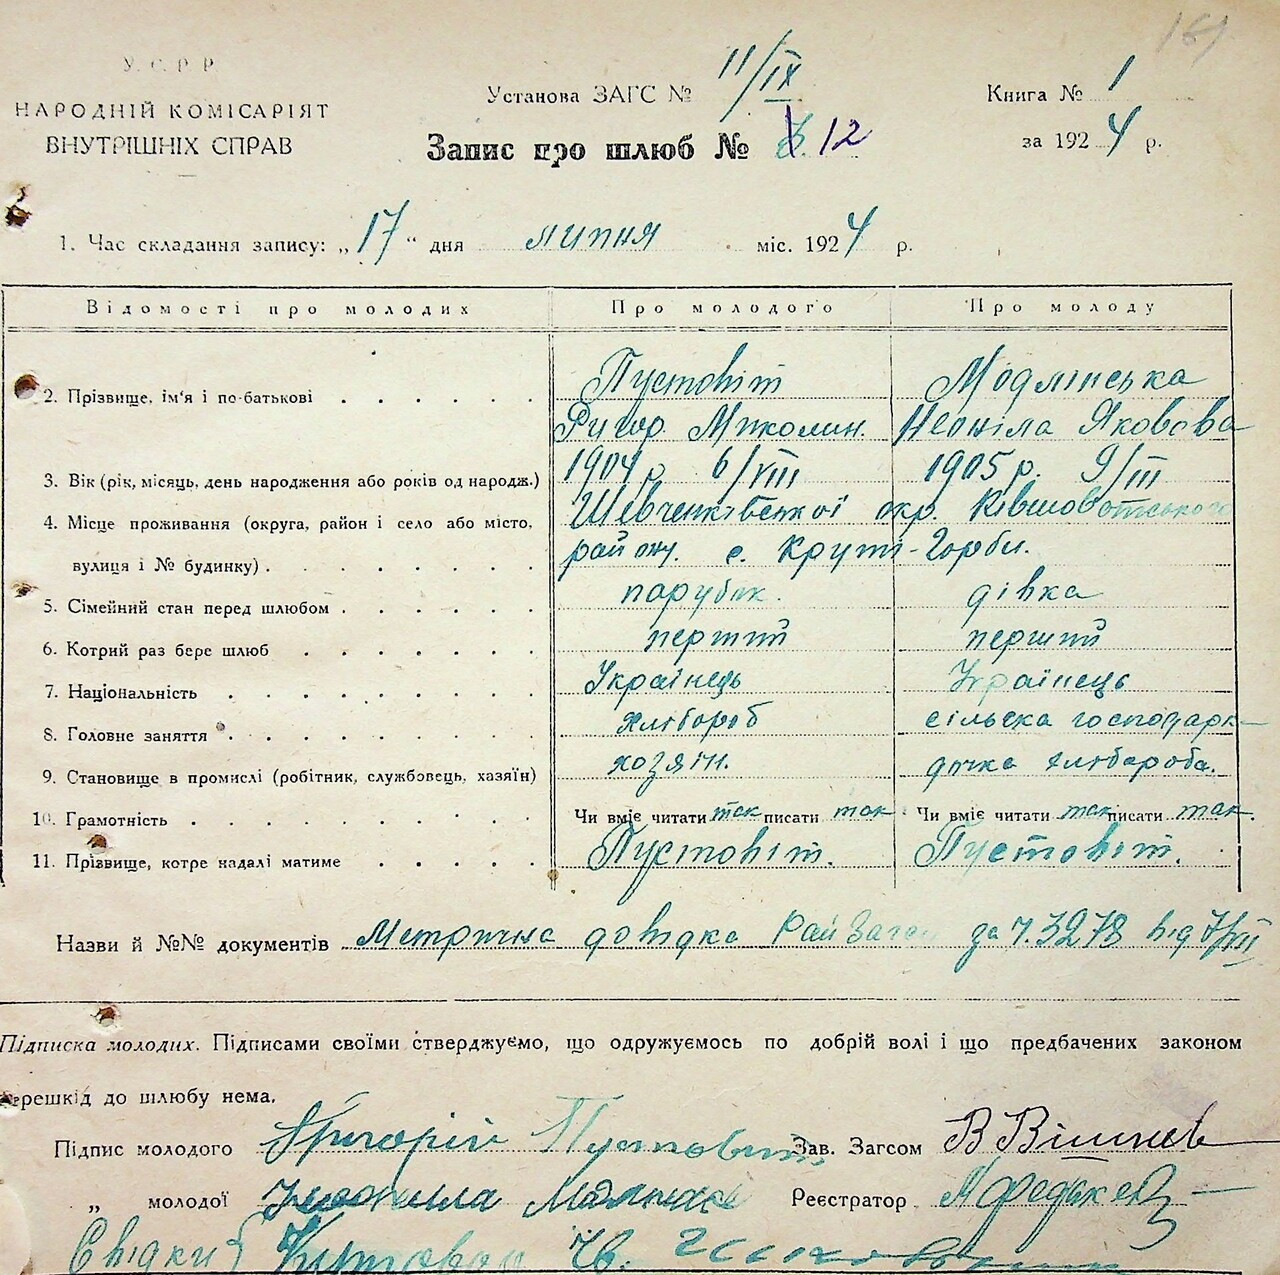 161
У.С.Р.Р.
НАРОДНІЙ КОМІСАРІЯТ
ВНУТРІШНІХ СПРАВ
Установа ЗАГС № 11/IX
Книга № 1
Запис про шлюб № 12
за 1924 р.
1. Час складання запису: „17“ дня липня міс. 1924 р.
Відомості про молодих Про молодого Про молоду
Пустовіт Модлінська
2. Прізвище, ім'я і по-батькові
Ригор Миколин. Неоніла Яковова
3. Вік (рік, місяць, день народження або років од народж.) 1904 р 6/VIII 1905 р. 9/III
4. Місце проживання (округа, район і село або місто, Шевченківської окр. Ківшоватського
вулиця і № будинку) району. с. Круті-Горби.
5. Сімейний стан перед шлюбом парубик. дівка
6. Котрий раз бере шлюб перший перший
7. Національність Українець Українець
8. Головне заняття хлібороб сільска господарк
9. Становище в промислі (робітник, службовець, хазяїн) хозяїн. дочка хлібороба.
10. Грамотність Чи вміє читати так писати так Чи вміє читати так писати так.
11. Прізвище, котре надалі матиме Пустовіт. Пустовіт.
Назви й №№ документів Метрична довідка РайЗагса за ч. 3278 від 7/VII
Підписка молодих. Підписами своїми стверджуємо, що одружуємось по добрій волі і що предбачених законом
перешкід до шлюбу нема.
Підпис молодого Григорій Пустовіт Зав. Загсом В Вішнев
„ молодої Реєстратор
Свідки